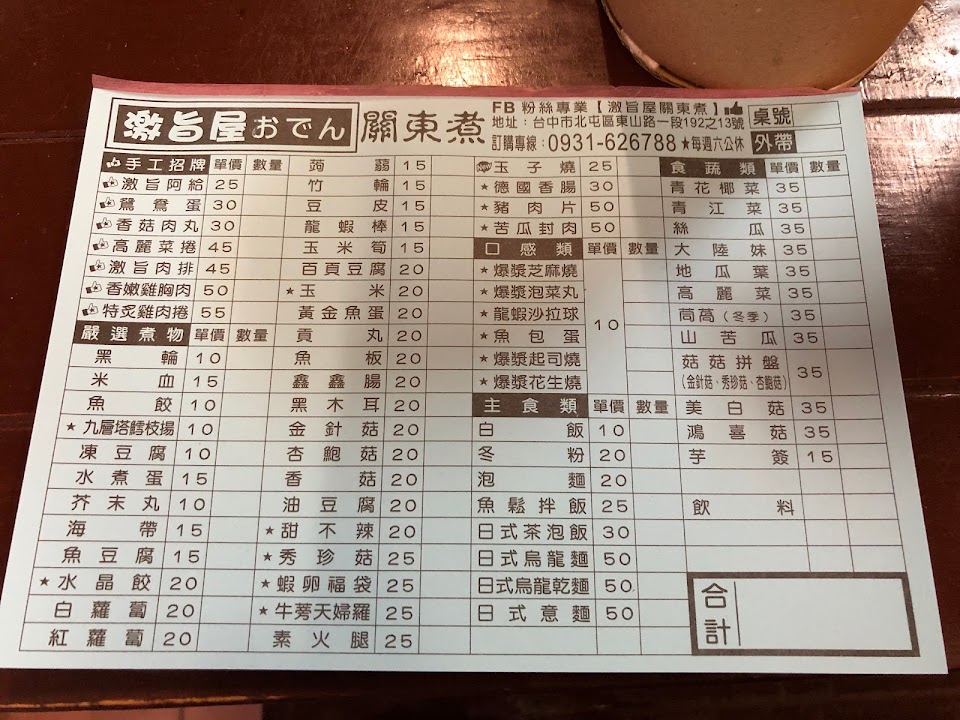 激旨屋 おでん 關東煮
FB 粉絲專業【激旨屋關東煮】
地址：台中市北屯區東山路一段192之13號
訂購專線：0931-626788 ★每週六公休
桌號
外帶
手工招牌 單價 數量
激旨阿給 25
鴛鴦蛋 30
香菇肉丸 30
高麗菜捲 45
激旨肉排 45
香嫩雞胸肉 50
特炙雞肉捲 55
嚴選煮物 單價 數量
黑輪 10
米血 15
魚餃 10
★九層塔鱈杖場 10
凍豆腐 10
水煮蛋 15
芥末丸 10
海帶 15
魚豆腐 15
★水晶餃 20
白蘿蔔 20
紅蘿蔔 20
蒟蒻 15
竹輪 15
豆皮 15
龍蝦棒 15
玉米筍 15
百頁豆腐 20
★玉米 20
黃金魚蛋 20
貢丸 20
魚板 20
鑫鑫腸 20
黑木耳 20
金針菇 20
杏鮑菇 20
香菇 20
油豆腐 20
★甜不辣 20
★秀珍菇 25
★蝦卵福袋 25
★牛蒡天婦羅 25
素火腿 25
玉子燒 25
★德國香腸 30
★豬肉片 50
★苦瓜封肉 50
口感類 單價 數量
★爆漿芝麻燒
★爆漿泡菜丸
★龍蝦沙拉球
10
★魚包蛋
★爆漿起司燒
★爆漿花生燒
主食類 單價 數量
白飯 10
冬粉 20
泡麵 20
魚鬆拌飯 25
日式茶泡飯 30
日式烏龍麵 50
日式烏龍乾麵 50
日式意麵 50
食蔬類 單價 數量
青花椰菜 35
青江菜 35
絲瓜 35
大陸妹 35
地瓜葉 35
高麗菜 35
茼萵(冬季) 35
山苦瓜 35
菇菇拼盤 35
(金針菇、秀珍菇、杏鮑菇)
美白菇 35
鴻喜菇 35
芋簽 15
飲料
合計